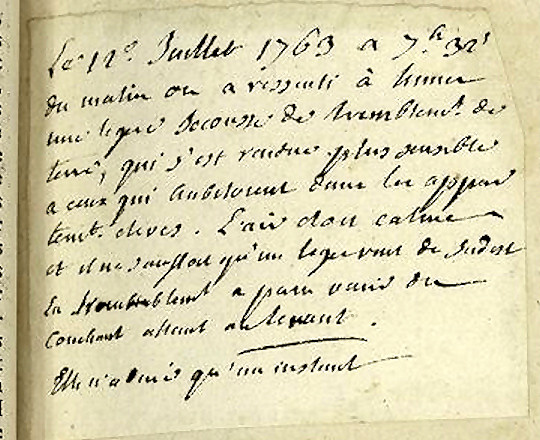 Le 12e Juillet 1763 a 7h 32'
du matin on a ressenti à
une legere secousse de tremblemt. de
terre, qui s'est rendue plus sensible
a ceux qui habitoient dans les appar
temts. elevés. L'air etoit calme
et il ne soufloit qu'un leger vent de Sudest
Le tremblement a paru venir du
Couchant allant au levant.
Elle n'a duré qu'un instant